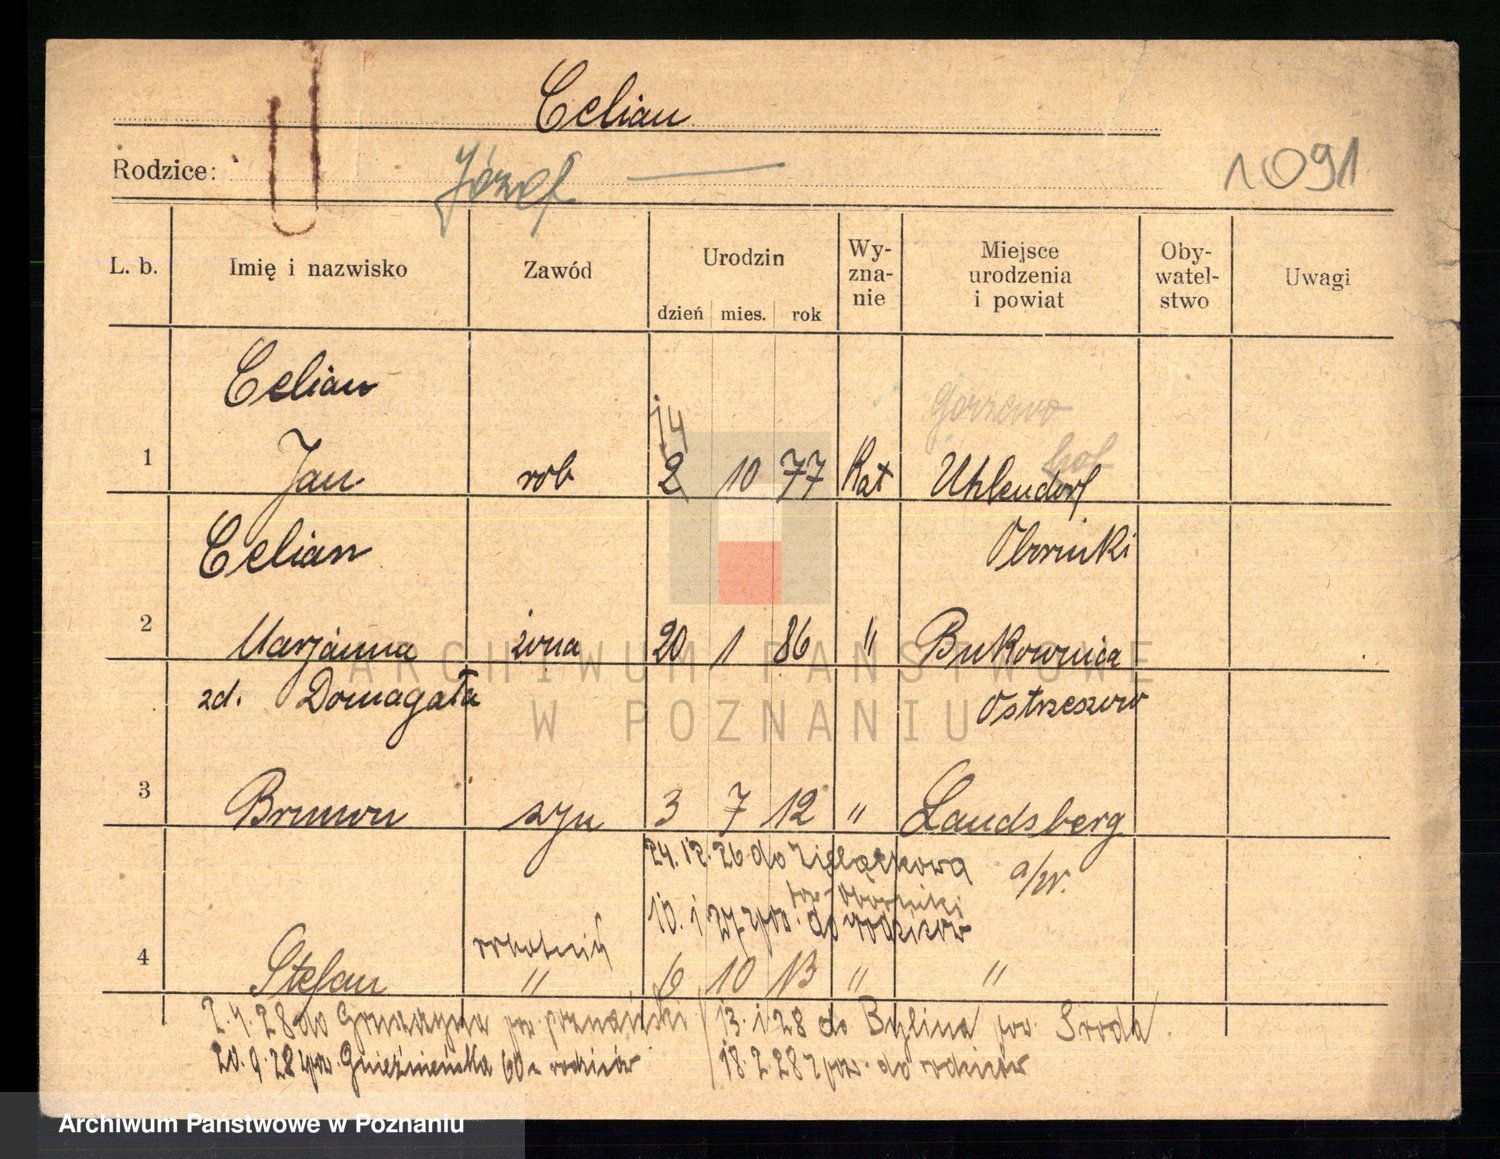 Celian
Rodzice: Józef —
1091
L. b. Imię i nazwisko Zawód Urodzin dzień mies. rok Wy-zna-nie Miejsce urodzenia i powiat Oby-watel-stwo Uwagi
Celian Gorzewo
14
1 Jan rob 2 10 77 Kat Uhlendorf
Celian Oborniki
2 Marjanna żona 20 1 86 " Bukownica
zd. Domagała Ostrzeszów
3 Brunon syn 3 7 12 " Landsberg
24.12.26 do a/W.
pow. Oborniki
10.1.27 pow. do rodziców
robotnik
4 Stefan " 6 10 13 " "
2.4.28 do pow. poznański 13.1.28 do Bylina pow. Środa.
20.9.28 pow. Gnieźnieńska 60 rodziców 18.2.28 pow. do rodziców
ARCHIWUM PAŃSTWOWE
W POZNANIU
Archiwum Państwowe w Poznaniu